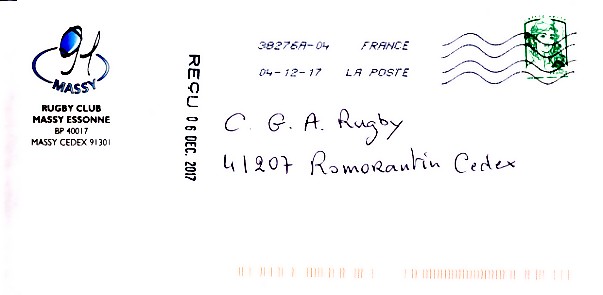 91
MASSY
RUGBY CLUB
MASSY ESSONNE
BP 40017
MASSY CEDEX 91301
REÇU 06 DEC. 2017
38276A-04 FRANCE
04-12-17 LA POSTE
C. G. A. Rugby
41207 Romorantin Cedex